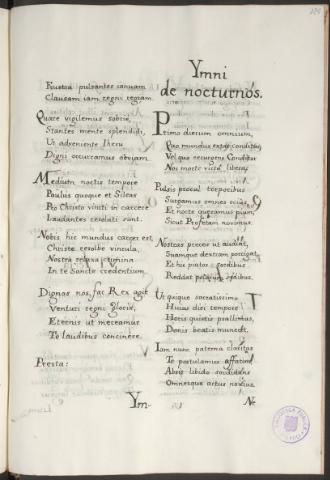 Frustra pulsantes ianuam
Clausam iam regni regiam.
Quare vigilemus sobrie,
Stantes mente splendidi,
Ut adveniente Ihesu
Digni occurramus obviam.
Mediæ noctis tempore
Paulus quoque et Sileas
Pro Christo vincti in carcere
Laudantes resoluti sunt.
Nobis hic mundus carcer est,
Christe resolve vincula,
Nostra relaxa crimina
In te Sancte credentium.
Dignos nos, fac Rex agie
Venturi regni gloriæ,
Eternis ut mereamur
Te laudibus concinere.
Presta:
Ym-
Ymni
de nocturnos.
Primo dierum omnium,
Quo mundus extat conditus,
Vel quo resurgens Conditor
Nos morte victa liberat
Pulsis procul torporibus
Surgamus omnes ocius,
Et nocte queramus pium,
Sicut Profetam novimus.
Nostras preces ut audiat,
Suamque dextram porrigat,
Et hic piatos sordibus
Reddat polorum sedibus.
Ut quique sacratissimo
Huius diei tempore
Horis quietis psallimus,
Donis beatis muneret.
Iam nunc paterna claritas
Te postulamus affatim
Absit libido sordidans
Omnesque actus noxius.
Ne